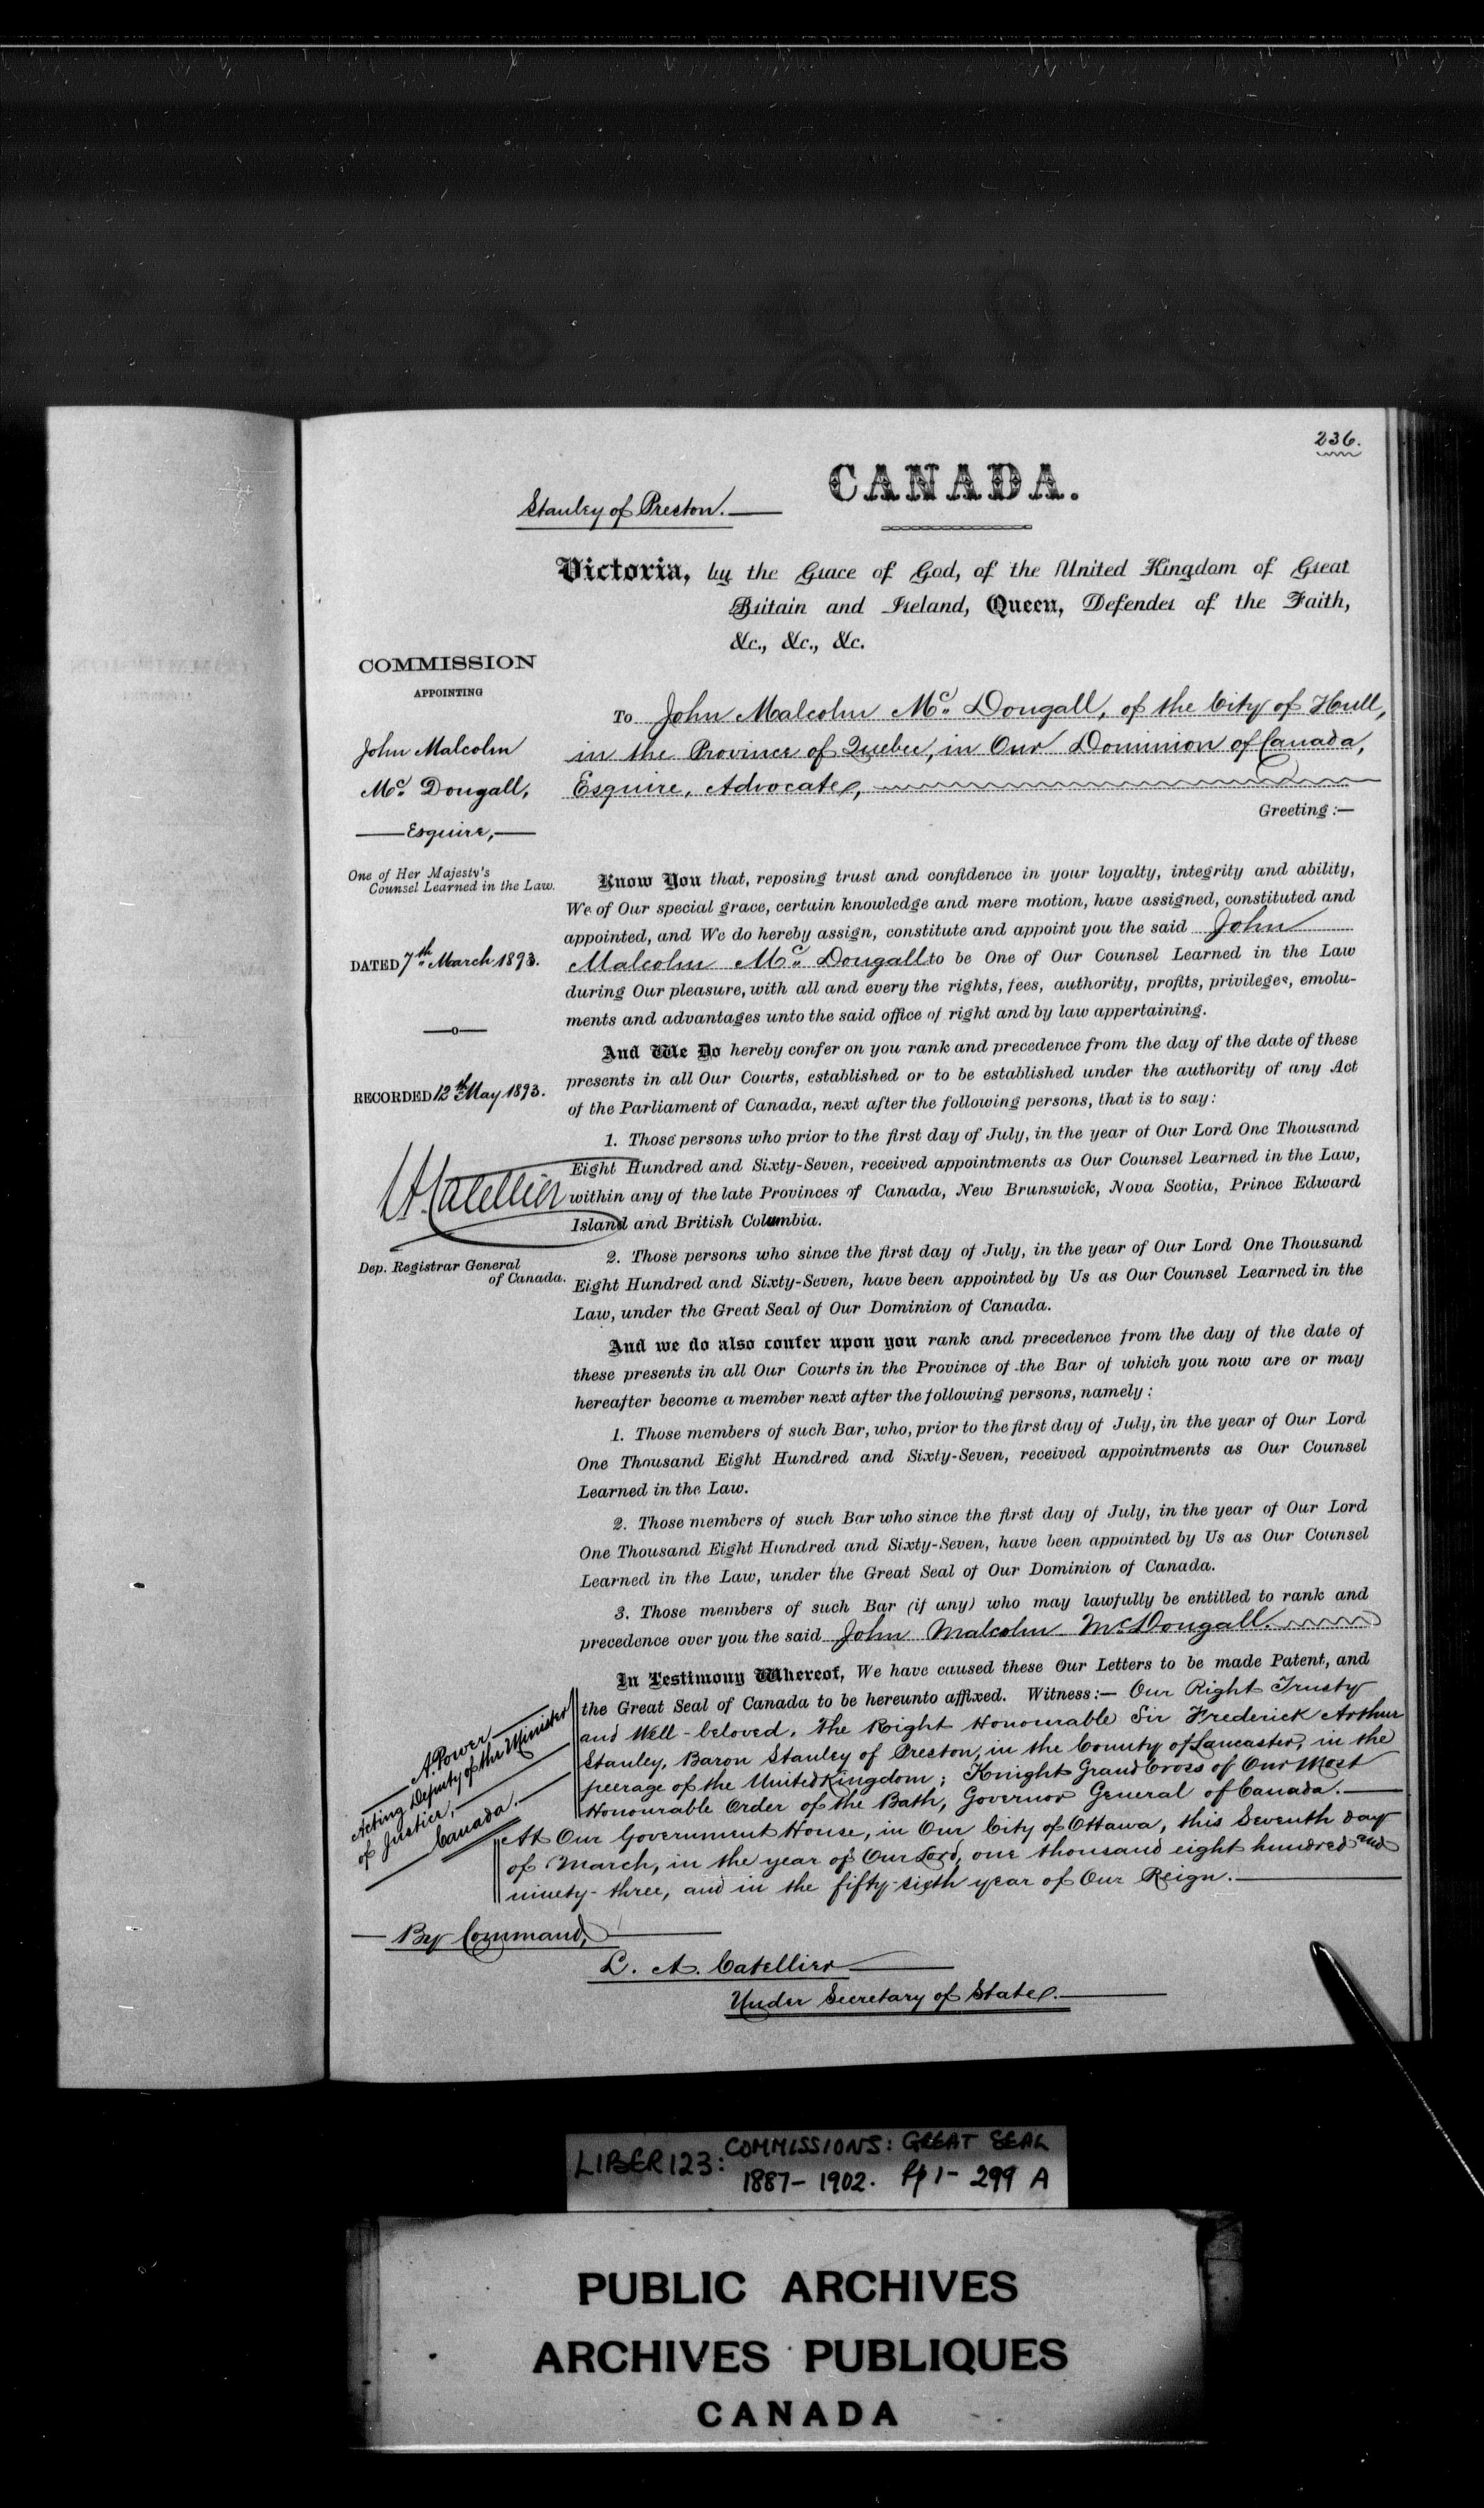 236.
CANADA.
Stanley of Preston.
Victoria, by the Grace of God, of the United Kingdom of Great
Britain and Ireland, Queen, Defender of the Faith,
&c., &c., &c.
COMMISSION
APPOINTING
John Malcolm
Mc. Dougall,
Esquire,
One of Her Majesty's
Counsel Learned in the Law.
DATED 7th March 1893.
RECORDED 12th May 1893.
Dep. Registrar General
of Canada.
To John Malcolm Mc. Dougall, of the City of Hull,
in the Province of Quebec, in Our Dominion of Canada,
Esquire, Advocate,
Greeting :—
Know You that, reposing trust and confidence in your loyalty, integrity and ability,
We of Our special grace, certain knowledge and mere motion, have assigned, constituted and
appointed, and We do hereby assign, constitute and appoint you the said John
Malcolm Mc. Dougall to be One of Our Counsel Learned in the Law
during Our pleasure, with all and every the rights, fees, authority, profits, privileges, emolu-
ments and advantages unto the said office of right and by law appertaining.
And We Do hereby confer on you rank and precedence from the day of the date of these
presents in all Our Courts, established or to be established under the authority of any Act
of the Parliament of Canada, next after the following persons, that is to say:
1. Those persons who prior to the first day of July, in the year of Our Lord One Thousand
Eight Hundred and Sixty-Seven, received appointments as Our Counsel Learned in the Law,
within any of the late Provinces of Canada, New Brunswick, Nova Scotia, Prince Edward
Island and British Columbia.
2. Those persons who since the first day of July, in the year of Our Lord One Thousand
Eight Hundred and Sixty-Seven, have been appointed by Us as Our Counsel Learned in the
Law, under the Great Seal of Our Dominion of Canada.
And we do also confer upon you rank and precedence from the day of the date of
these presents in all Our Courts in the Province of the Bar of which you now are or may
hereafter become a member next after the following persons, namely :
1. Those members of such Bar, who, prior to the first day of July, in the year of Our Lord
One Thousand Eight Hundred and Sixty-Seven, received appointments as Our Counsel
Learned in the Law.
2. Those members of such Bar who since the first day of July, in the year of Our Lord
One Thousand Eight Hundred and Sixty-Seven, have been appointed by Us as Our Counsel
Learned in the Law, under the Great Seal of Our Dominion of Canada.
3. Those members of such Bar (if any) who may lawfully be entitled to rank and
precedence over you the said John Malcolm McDougall.
In Testimony Whereof, We have caused these Our Letters to be made Patent, and
the Great Seal of Canada to be hereunto affixed. Witness:— Our Right Trusty
and Well-beloved, The Right Honourable Sir Frederick Arthur
Stanley, Baron Stanley of Preston, in the County of Lancaster, in the
peerage of the United Kingdom; Knight Grand Cross of Our Most
Honourable Order of the Bath, Governor General of Canada.
At Our Government House, in Our City of Ottawa, this Seventh day
of March, in the year of Our Lord, one thousand eight hundred and
ninety-three, and in the fifty-sixth year of Our Reign.
A. Power
Acting Deputy of the Minister
of Justice,
Canada.
By Command,
L. A. Catellier
Under Secretary of State.
LIBER 123: COMMISSIONS: GREAT SEAL
1887-1902. Pp 1-299 A
PUBLIC ARCHIVES
ARCHIVES PUBLIQUES
CANADA